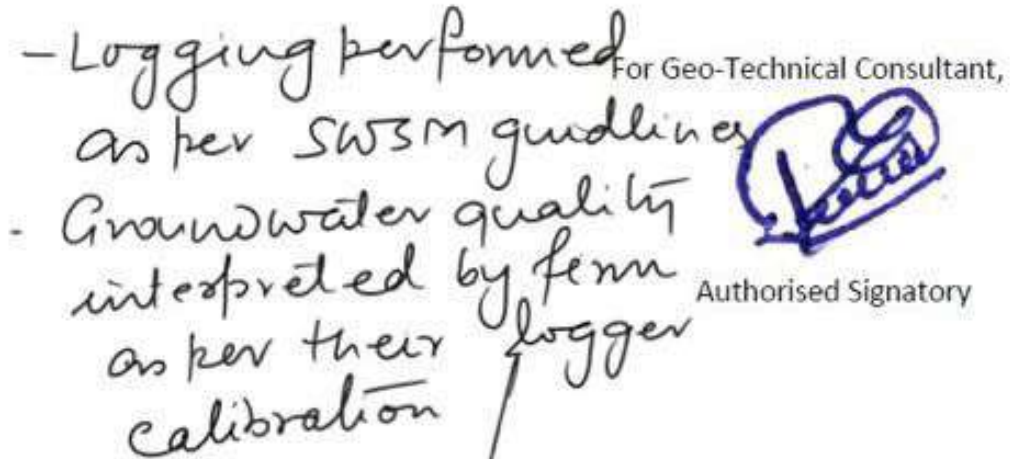 - Logging performed
as per SWSM guidlines
- Groundwater quality
interpreted by firm
as per their logger
calibration
For Geo-Technical Consultant,
Authorised Signatory